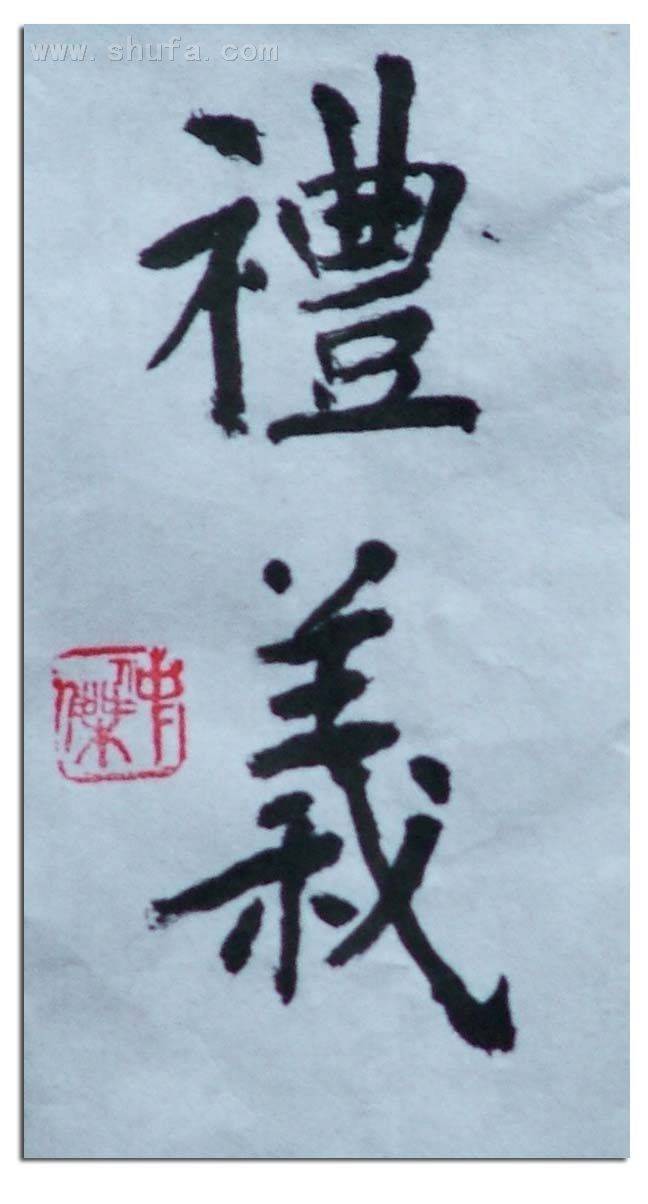 www.shufa.com
禮
義